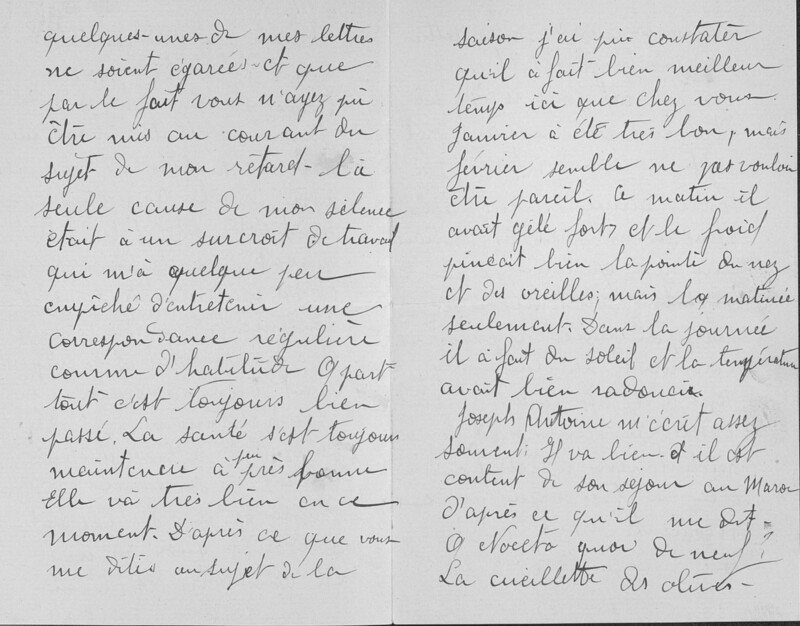 quelques-unes de mes lettres
ne soient égarées et que
par le fait vous n'ayez pu
être mis au courant du
sujet de mon retard - la
seule cause de mon silence
était à un surcroit de travail
qui m'à quelque peu
empêché d'entretenir une
correspondance régulière
comme d'habitude A part
tout c'est toujours bien
passé. La santé s'est toujours
maintenue à peu près bonne
Elle và très bien en ce
moment. D'après ce que vous
me dites au sujet de la
saison j'ai pu constater
qu'il à fait bien meilleur
temps ici que chez vous.
Janvier à été très bon, mais
février semble ne pas vouloir
être pareil. Ce matin il
avait gêlé fort et le froid
pinçait bien la pointe du nez
et des oreilles; mais la matinée
seulement. Dans la journée
il à fait du soleil et la température
avait bien radoucie.
Joseph Antoine m'écrit assez
soment. Il va bien. et il est
content de son séjour au Maroc
d'après ce qu'il me dit -
A Noceta quoi de neuf?
La cueillette des olives -